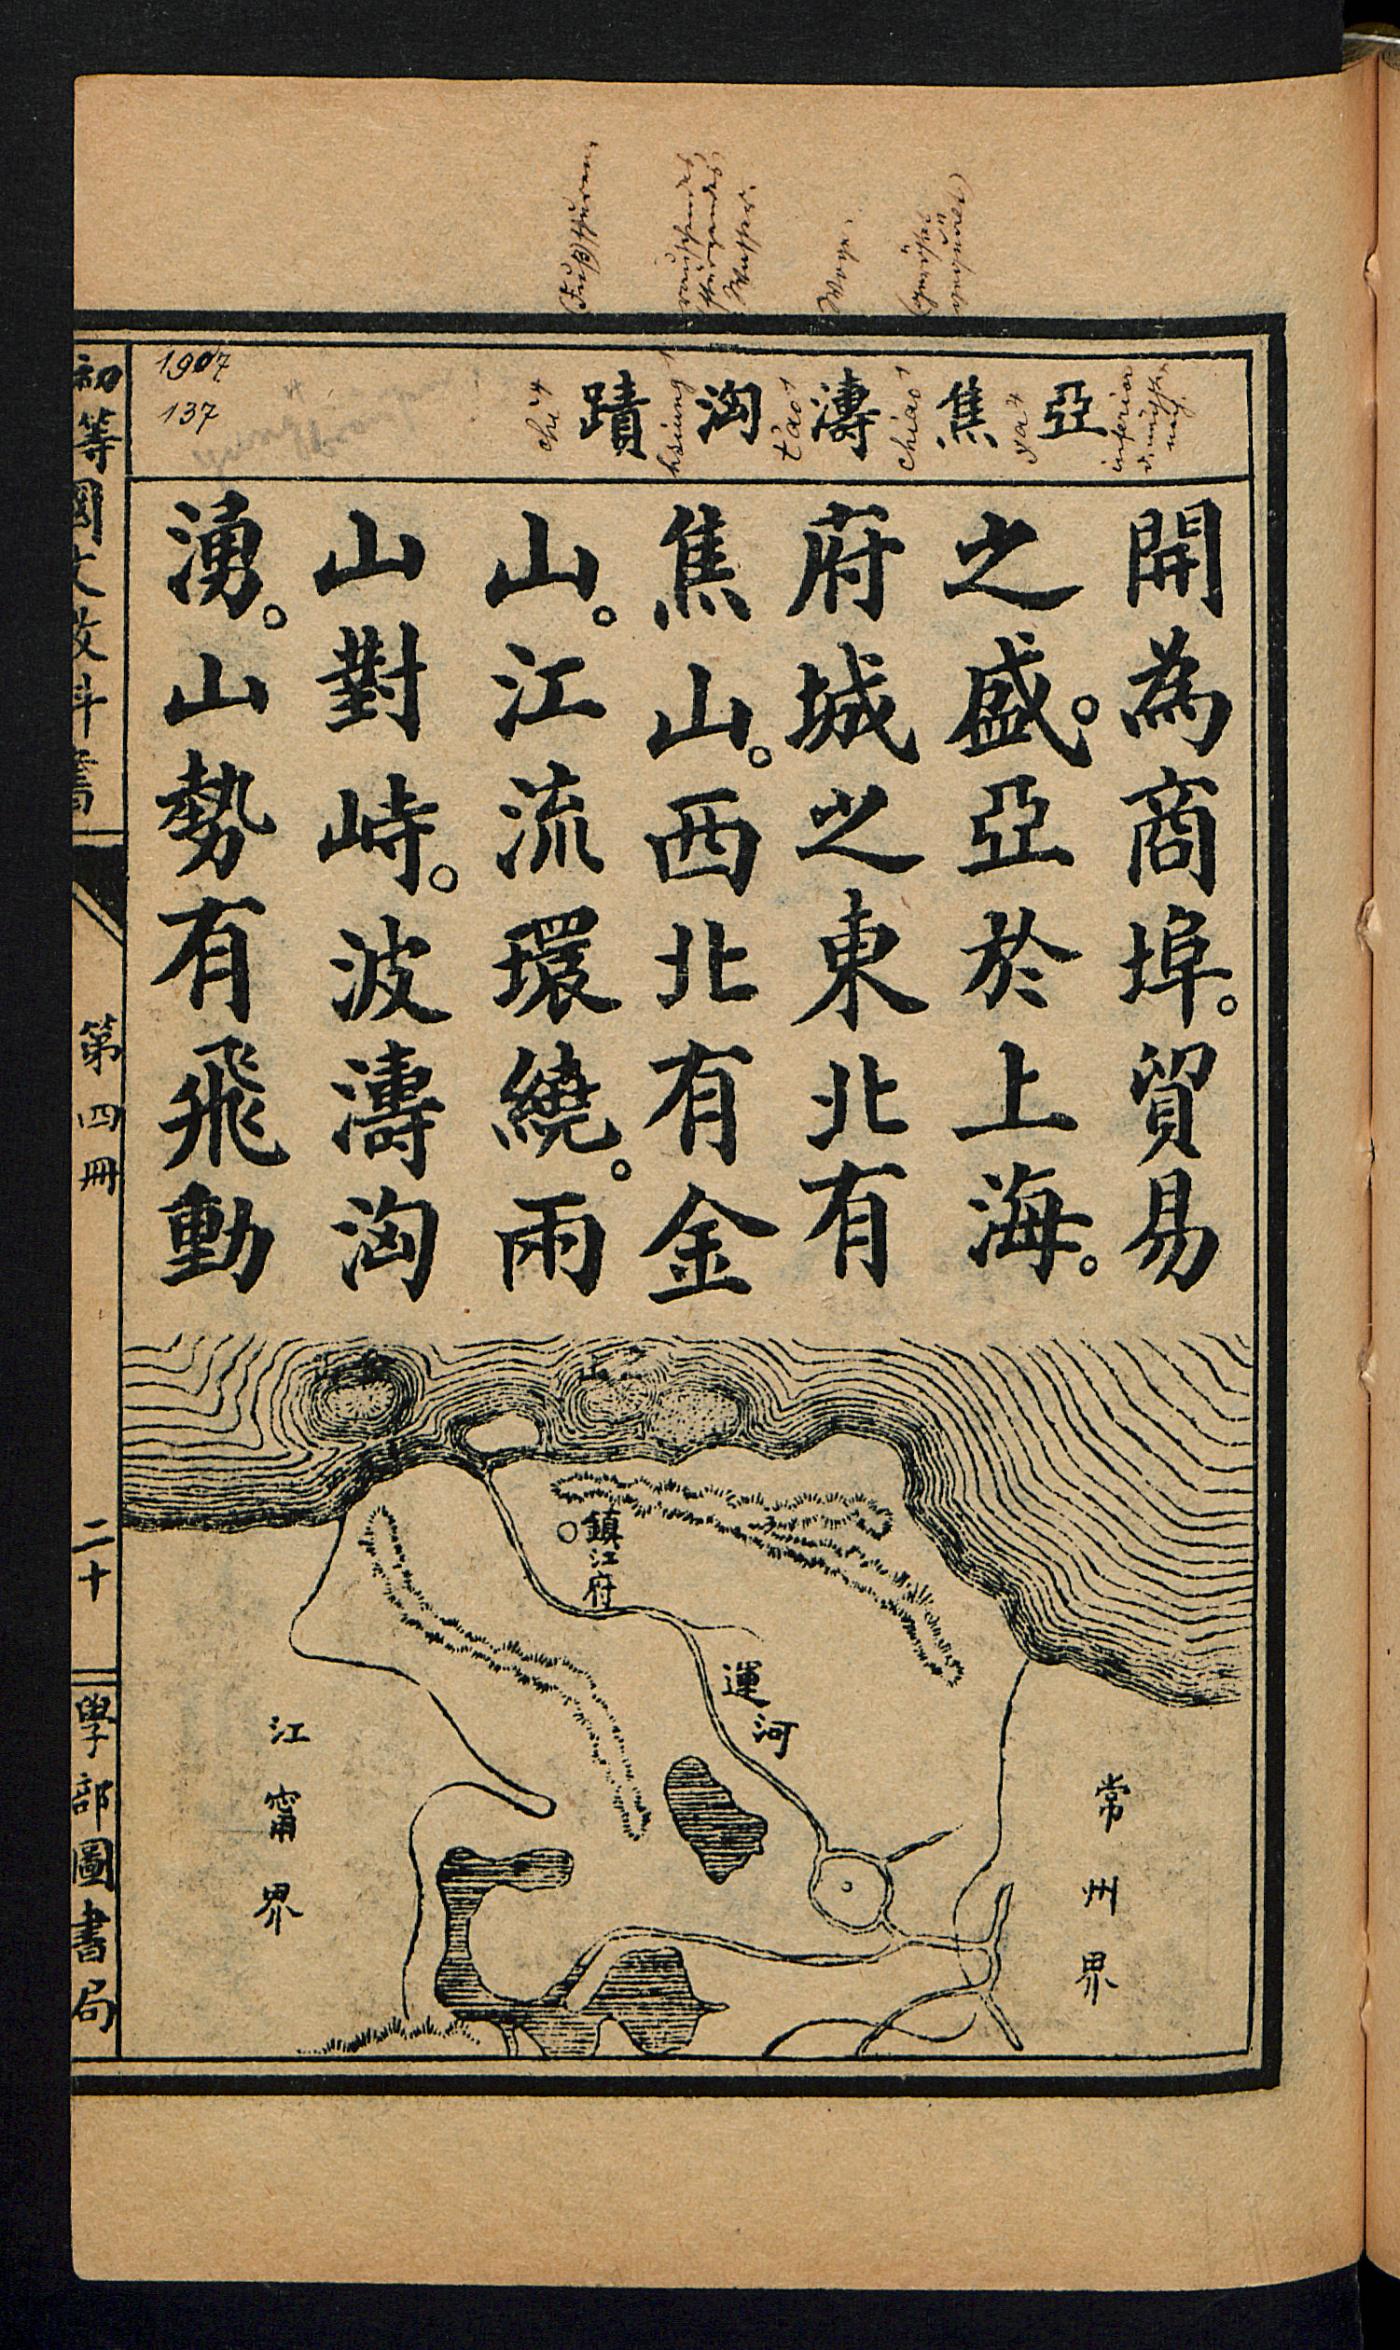 亞焦濤洶蹟
inferior
ya⁴
chiao¹
t'ao¹
hsiung¹
chi⁴
1907
137
開為商埠。貿易
之盛。亞於上海。
府城之東北有
焦山。西北有金
山。江流環繞。兩
山對峙。波濤洶
湧。山勢有飛動
鎮江府
運河
常州界
江甯界
初等國文教科書
第四冊
二十
學部圖書局